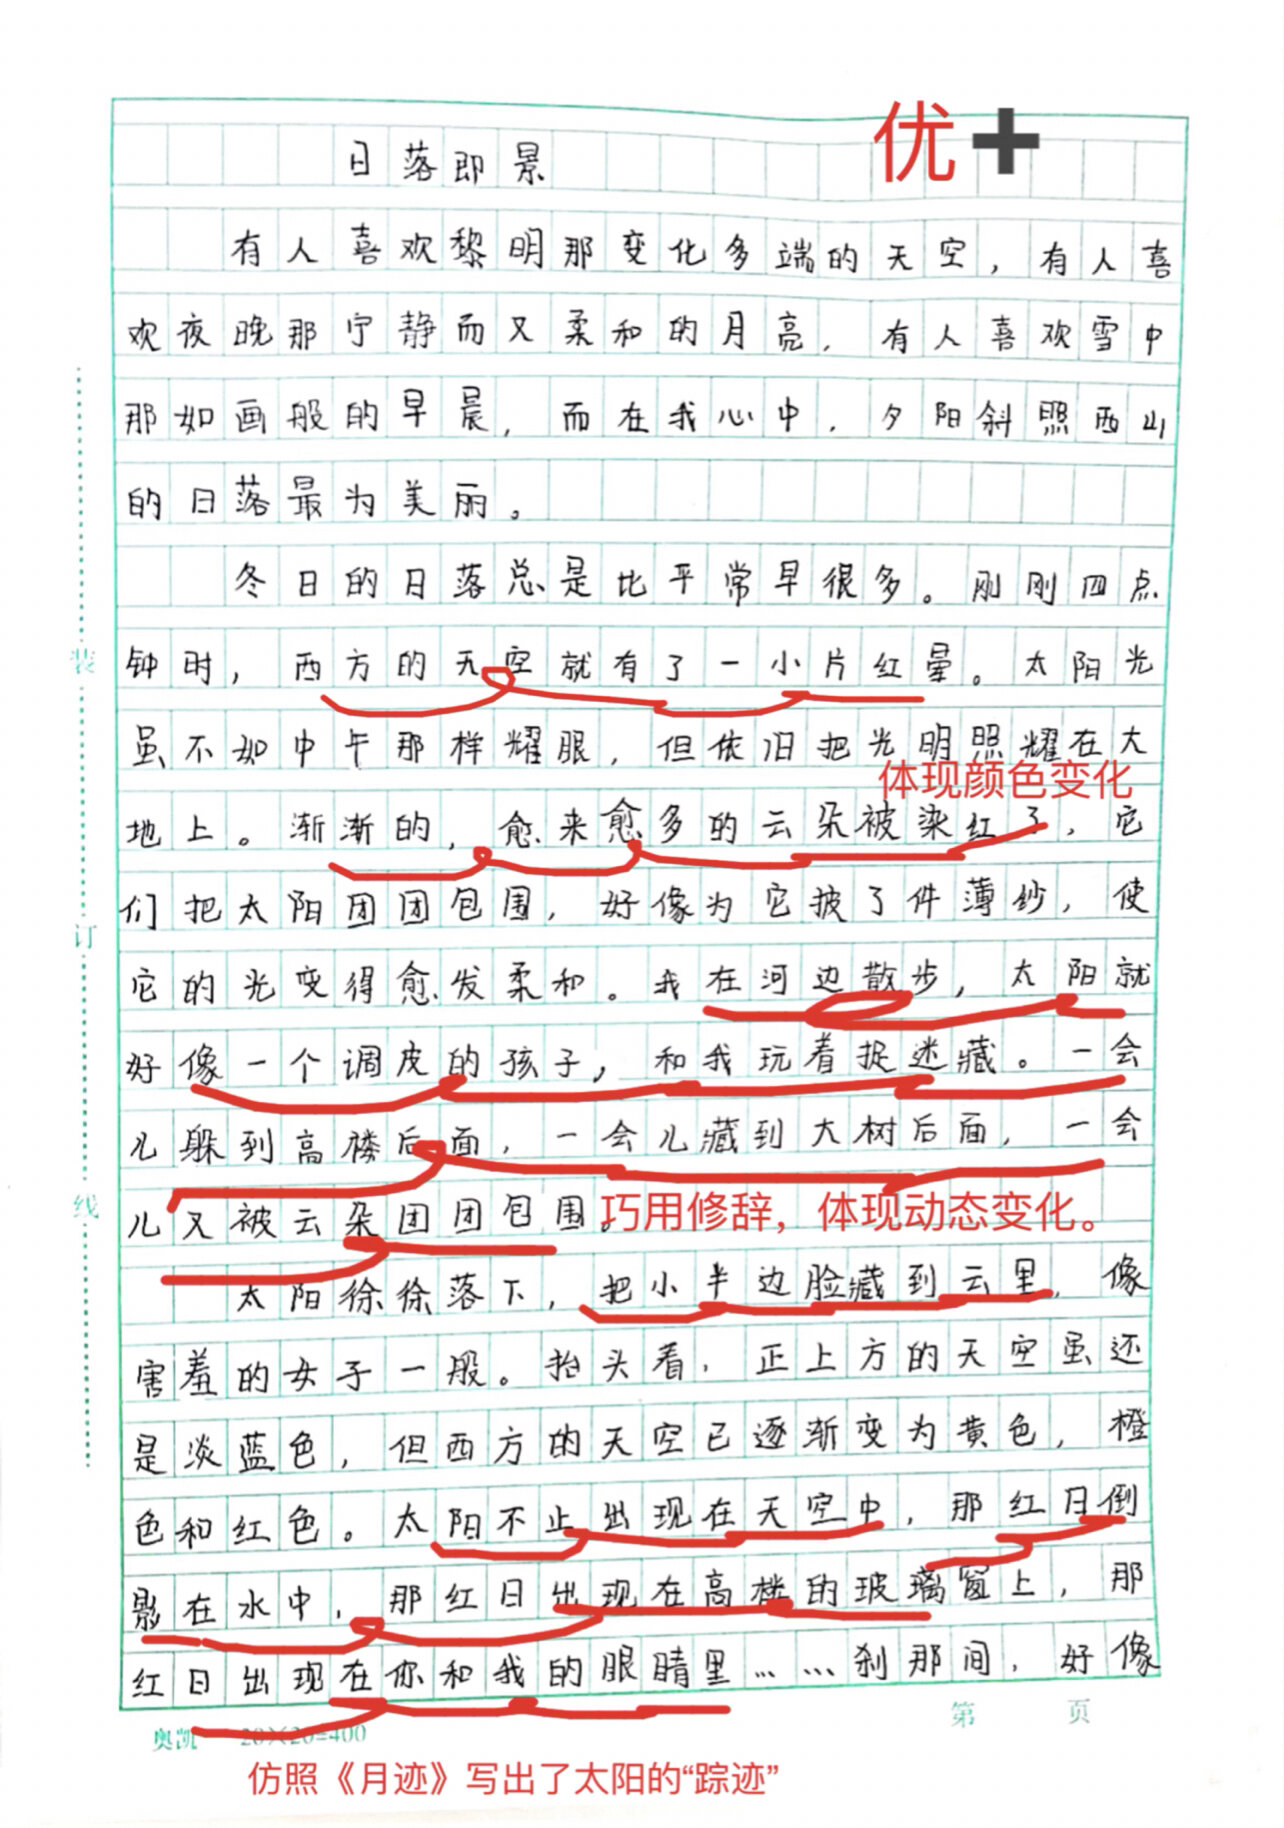 优➕
日落即景
有人喜欢黎明那变化多端的天空，有人喜
欢夜晚那宁静而又柔和的月亮，有人喜欢雪中
那如画般的早晨，而在我心中，夕阳斜照西山
的日落最为美丽。
冬日的日落总是比平常早很多。刚刚四点
钟时，西方的天空就有了一小片红晕。太阳光
虽不如中午那样耀眼，但依旧把光明照耀在大
体现颜色变化
地上。渐渐的，愈来愈多的云朵被染红了，它
们把太阳团团包围，好像为它披了件薄纱，使
它的光变得愈发柔和。我在河边散步，太阳就
好像一个调皮的孩子，和我玩着捉迷藏。一会
儿躲到高楼后面，一会儿藏到大树后面，一会
儿又被云朵团团包围。
巧用修辞，体现动态变化。
太阳徐徐落下，把小半边脸藏到云里，像
害羞的女子一般。抬头看，正上方的天空虽还
是淡蓝色，但西方的天空已逐渐变为黄色，橙
色和红色。太阳不止出现在天空中，那红日倒
影在水中，那红日出现在高楼的玻璃窗上，那
红日出现在你和我的眼睛里……刹那间，好像
装
订
线
奥凯 20×20=400
第 页
仿照《月迹》写出了太阳的“踪迹”